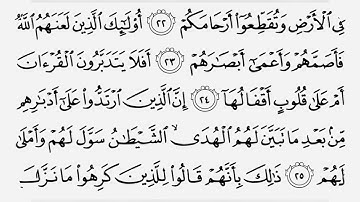 فِي الْأَرْضِ وَتُقَطِّعُوا أَرْحَامَكُمْ ٢٢ أُولَٰئِكَ الَّذِينَ لَعَنَهُمُ اللَّهُ
فَأَصَمَّهُمْ وَأَعْمَىٰ أَبْصَارَهُمْ ٢٣ أَفَلَا يَتَدَبَّرُونَ الْقُرْءَانَ
أَمْ عَلَىٰ قُلُوبٍ أَقْفَالُهَا ٢٤ إِنَّ الَّذِينَ ارْتَدُّوا عَلَىٰ أَدْبَارِهِم
مِّن بَعْدِ مَا تَبَيَّنَ لَهُمُ الْهُدَى ۙ الشَّيْطَانُ سَوَّلَ لَهُمْ وَأَمْلَىٰ
لَهُمْ ٢٥ ذَٰلِكَ بِأَنَّهُمْ قَالُوا لِلَّذِينَ كَرِهُوا مَا نَزَّلَ